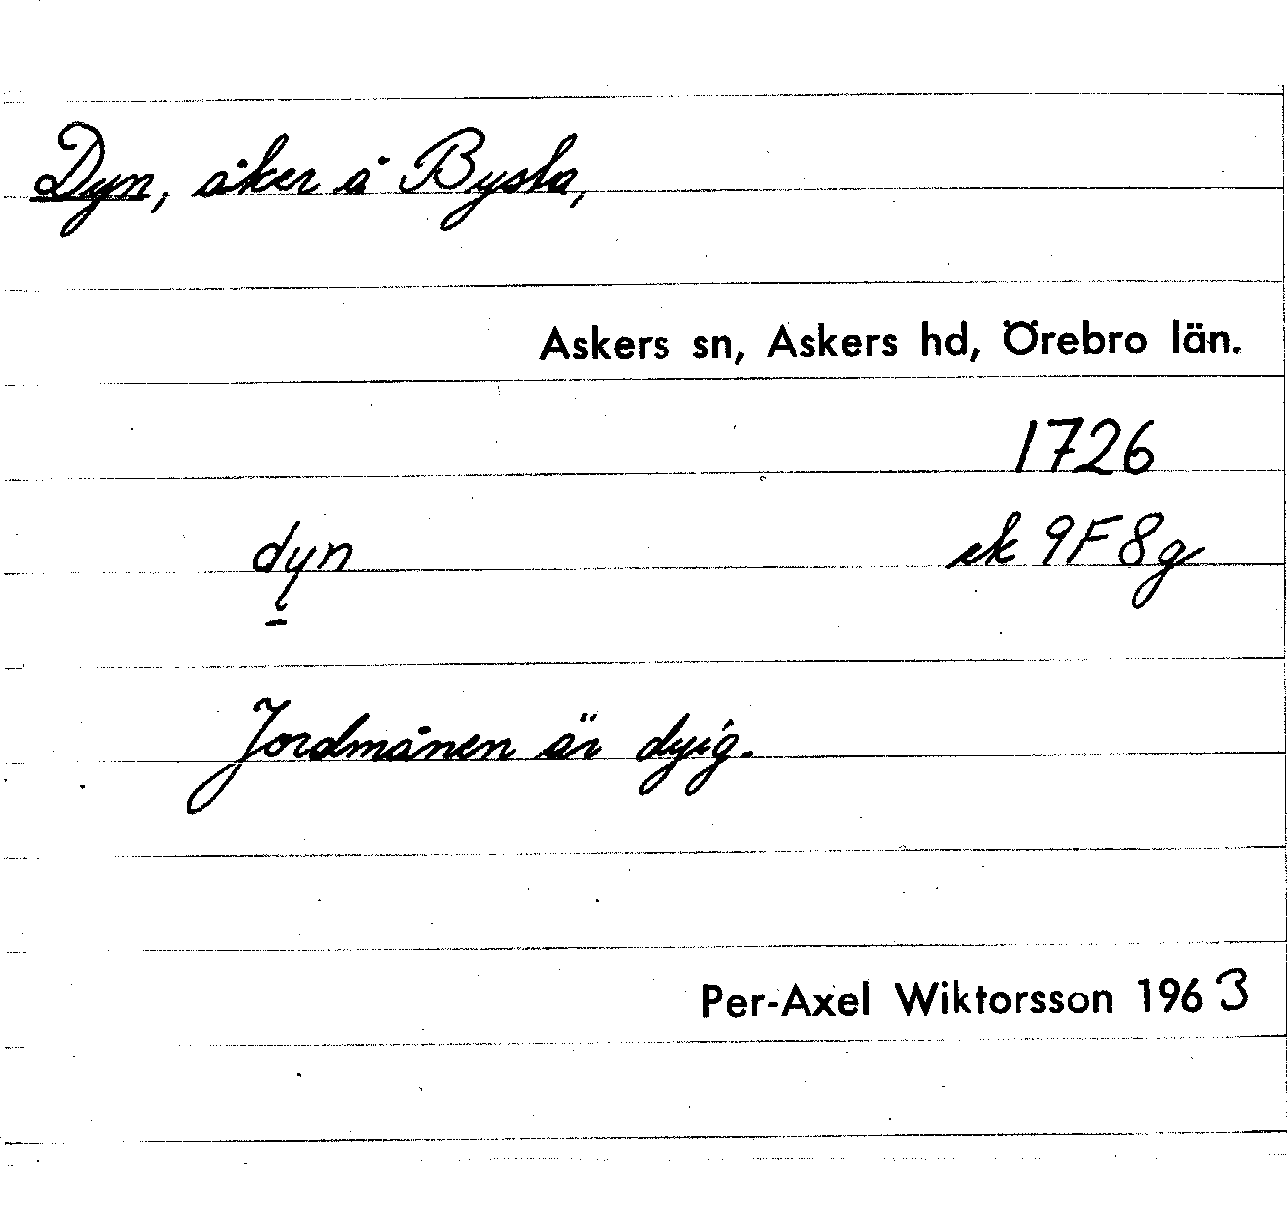 Dyn, åker å Bysta,
Askers sn, Askers hd, Örebro län.
1726
dyn ek 9F8g
Jordmånen är dyig.
Per-Axel Wiktorsson 1963